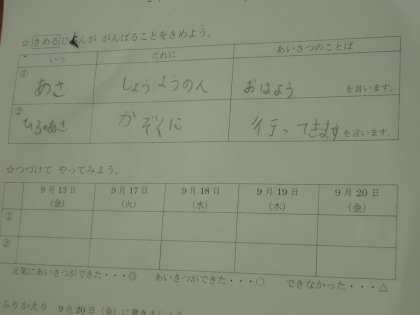 ☆きめる
がんばることをきめよう。
いつ だれに あいさつのことば
① あさ しょうようのん おはよう を言います。
② かぞくに 行ってきます を言います。
☆つづけて やってみよう。
9月13日 9月17日 9月18日 9月19日 9月20日
(金) (火) (水) (木) (金)
①
②
元気にあいさつができた・・・◎ あいさつができた・・・○ できなかった・・・△
ふりかえり 9月20日(金)に書きましょう